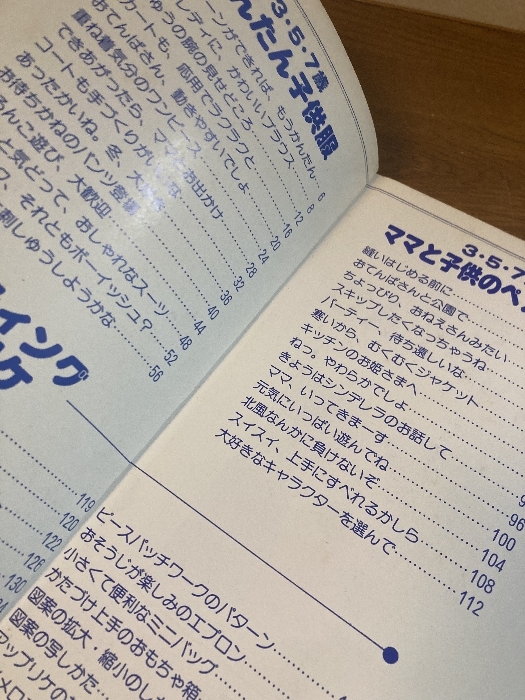 3・5・7歳
んたん子供服
ーンができれば、もうかんたん…6
レディに、かわいいブラウス…8
ゅうの腕の見せどころ…12
カートも、応用でラクラクと…16
おてんばさん、動きやすいでしょ…20
重ね着気分のワンピース…24
できあがったら、ママとお出かけ…28
コートも手づくりがいい…32
あったかいね。冬、大
お待ちかねのパンツ登場…36
るんこ遊び、大歓迎…40
と気どって、おしゃれなスーツ…44
ワ、それともボーイッシュ?…48
刺しゅうしようかな…52
56
イング
ケ
119
120
122
126
130
3・5・7
ママと子供のペ
縫いはじめる前に
おてんばさんと公園で
ちょっぴり、おねえさんみたい
スキップしたくなっちゃうね
パーティー、待ち遠しいな
寒いから、むくむくジャケット
キッチンのお姫さまへ
ねっ。やわらかでしょ
きょうはシンデレラのお話して
ママ、いってきまーす
元気にいっぱい遊んでね…96
北風なんかに負けないぞ…100
スイスイ、上手にすべれるかしら…104
大好きなキャラクターを選んで…108
112
ピースパッチワークのパターン
おそうじが楽しみのエプロン
小さくて便利なミニバッグ
かたづけ上手のおもちゃ箱
図案の拡大・縮小のし
図案の写しかた
アップリケの